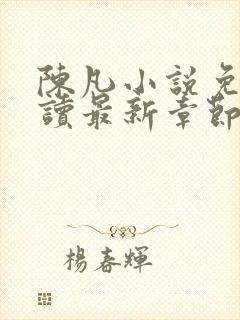 陳凡小說免
讀最新章節
楊春輝